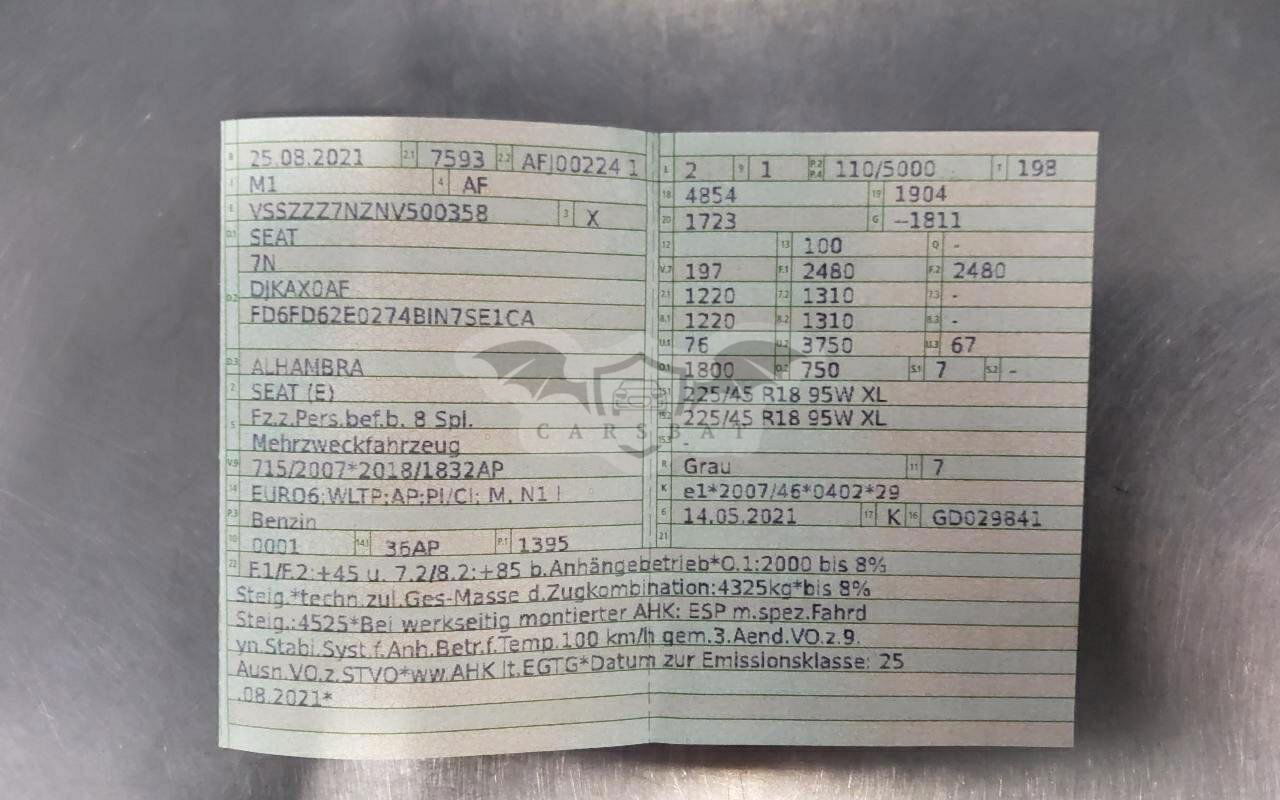 B 25.08.2021 2.1 7593 2.2 AFJ00224 1
J M1 4 AF
E VSSZZZ7NZNV500358 3 X
D.1 SEAT
7N
D.2 DJKAX0AF
FD6FD62E0274BIN7SE1CA
D.3 ALHAMBRA
2 SEAT (E)
5 Fz.z.Pers.bef.b. 8 Spl.
Mehrzweckfahrzeug
V.9 715/2007*2018/1832AP
14 EURO6;WLTP;AP;PI/CI; M, N1 I
P.3 Benzin
10 0001 14.1 36AP P.1 1395
L 2 9 1 P.2 P.4 110/5000 T 198
18 4854 19 1904
20 1723 G --1811
12 13 100 Q -
V.7 197 F.1 2480 F.2 2480
7.1 1220 7.2 1310 7.3 -
8.1 1220 8.2 1310 8.3 -
U.1 76 U.2 3750 U.3 67
O.1 1800 O.2 750 S.1 7 S.2 -
15.1 225/45 R18 95W XL
15.2 225/45 R18 95W XL
15.3 -
R Grau 11 7
K e1*2007/46*0402*29
6 14.05.2021 17 K 16 GD029841
21
22 F.1/F.2:+45 u. 7.2/8.2:+85 b.Anhängebetrieb*O.1:2000 bis 8%
Steig.*techn.zul.Ges-Masse d.Zugkombination:4325kg*bis 8%
Steig.:4525*Bei werkseitig montierter AHK: ESP m.spez.Fahrd
yn.Stabi.Syst.f.Anh.Betr.f.Temp.100 km/h gem.3.Aend.VO.z.9.
Ausn.VO.z.STVO*ww.AHK lt.EGTG*Datum zur Emissionsklasse: 25
.08.2021*
CARSBAT